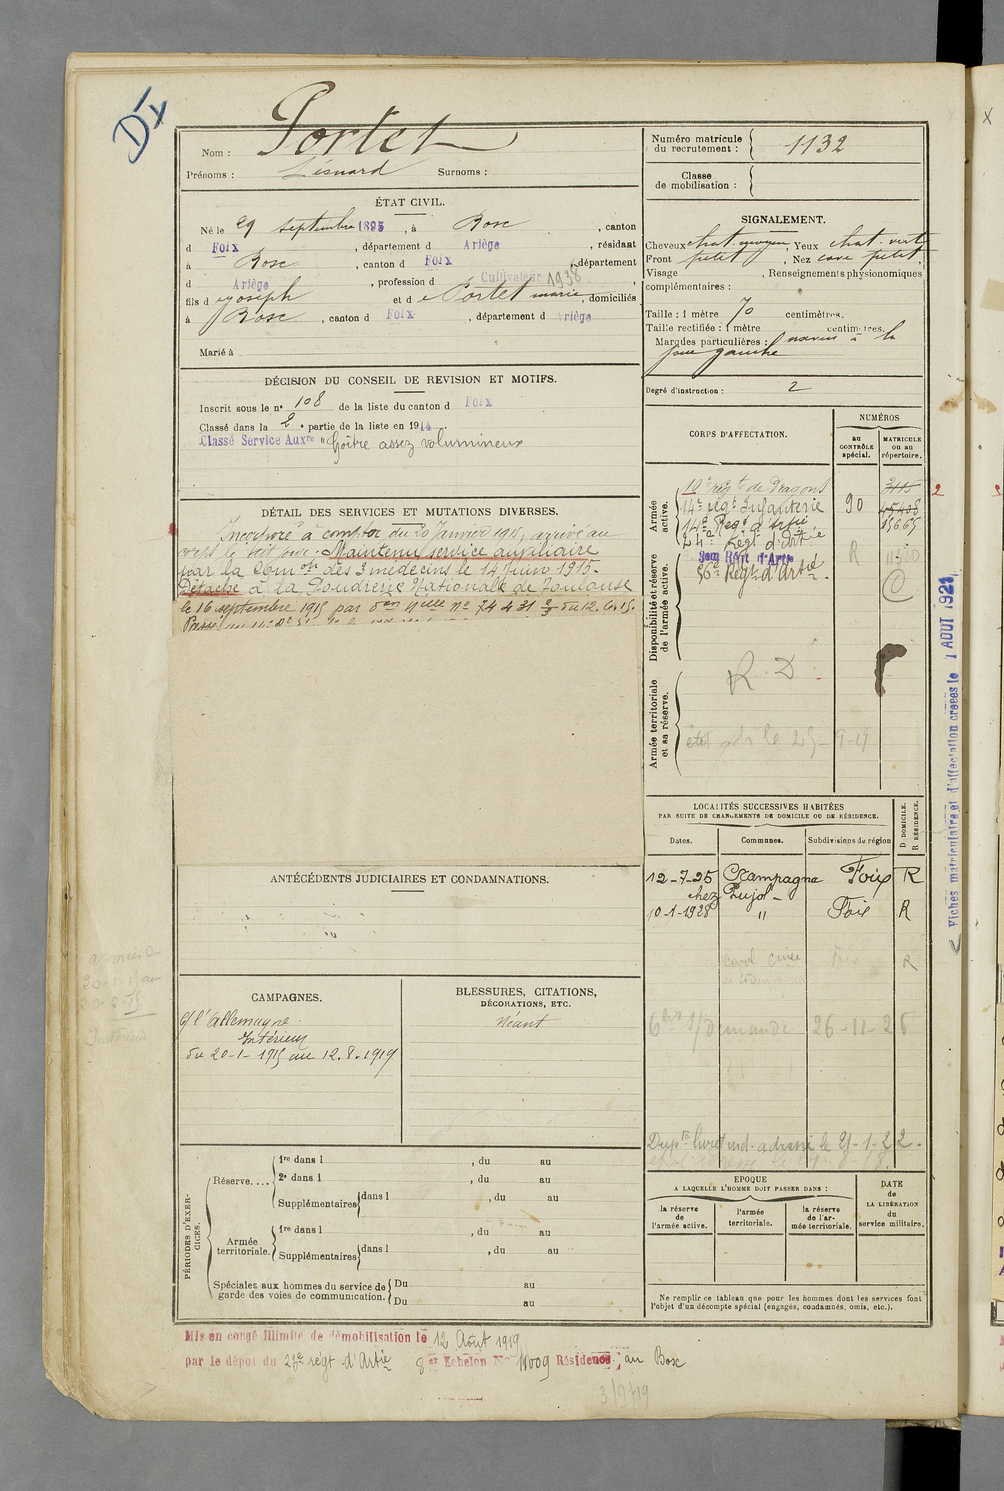 DX
Nom : Portet
Prénoms : Lésnard Surnoms :
Numéro matricule du recrutement : 1132
Classe de mobilisation :
ÉTAT CIVIL.
Né le 29 septembre 1895, à Bosc, canton
d Foix, département d Ariège, résidant
à Bosc, canton d Foix, département
d Ariège, profession d Cultivateur 1938,
fils d e Joseph et d e Portet marie, domiciliés
à Bosc, canton d Foix, département d riège
Marié à
SIGNALEMENT.
Cheveux chat. moyen, Yeux chat. vert
Front petit, Nez cave petit,
Visage , Renseignements physionomiques
complémentaires :
Taille : 1 mètre 70 centimètres.
Taille rectifiée : 1 mètre centimètres.
Marques particulières : naevus à la
joue gauche
Degré d'instruction : 2
DÉCISION DU CONSEIL DE REVISION ET MOTIFS.
Inscrit sous le nº 108 de la liste du canton d Foix
Classé dans la 2e partie de la liste en 1914.
Classé Service Auxre "Goître assez volumineux
DÉTAIL DES SERVICES ET MUTATIONS DIVERSES.
Incorporé à compter du 20 Janvier 1915, arrivé au
corps le dit jour. Maintenu service auxiliaire
par la Comon des 3 médecins le 14 Juin 1915.
Détaché à la Poudrerie Nationale de Toulouse
le 16 septembre 1915 par don Melle no 74431 2/3 du 12.
Passé au
CORPS D'AFFECTATION.
NUMÉROS
au CONTRÔLE spécial.
MATRICULE ou au répertoire.
Armée active.
10e régt de Dragons
14e régt Infanterie 90
14e Regt d'Artie 15665
24e Régt d'Artie
Disponibilité et réserve de l'armée active.
56e Régt d'Artie.
R
R. D
Armée territoriale et sa réserve.
le 25-9-19
Fiches matriculaire et d'affectation créées le 1 AOUT 1921
LOCALITÉS SUCCESSIVES HABITÉES
PAR SUITE DE CHANGEMENTS DE DOMICILE OU DE RÉSIDENCE.
Dates. Communes. Subdivisions de région D DOMICILE. R RÉSIDENCE.
12-7-25 Campagna Foix R
chez Pujol
10-1-1928 " Foix R
R
demande 26-11-26
Dupta livret ind. adressé le 21-1-22.
ANTÉCÉDENTS JUDICIAIRES ET CONDAMNATIONS.
CAMPAGNES.
c/ l'Allemagne
Intérieur
du 20-1-1915 au 12.8.1919
BLESSURES, CITATIONS,
DÉCORATIONS, ETC.
Néant
PÉRIODES D'EXERCICES.
Réserve....
1re dans l , du au
2e dans l , du au
Supplémentaires dans l , du au
Armée territoriale.
1re dans l , du au
Supplémentaires dans l , du au
Spéciales aux hommes du service de garde des voies de communication.
Du au
Du au
EPOQUE
A LAQUELLE L'HOMME DOIT PASSER DANS :
la réserve de l'armée active.
l'armée territoriale.
la réserve de l'armée territoriale.
DATE de LA LIBÉRATION du service militaire.
Ne remplir ce tableau que pour les hommes dont les services font
l'objet d'un décompte spécial (engagés, condamnés, omis, etc.).
Mis en congé illimité de démobilisation le 12 Août 1919
par le dépôt du régt d'Artie 8 et Echelon No Résidence : au Bosc
3/9/19